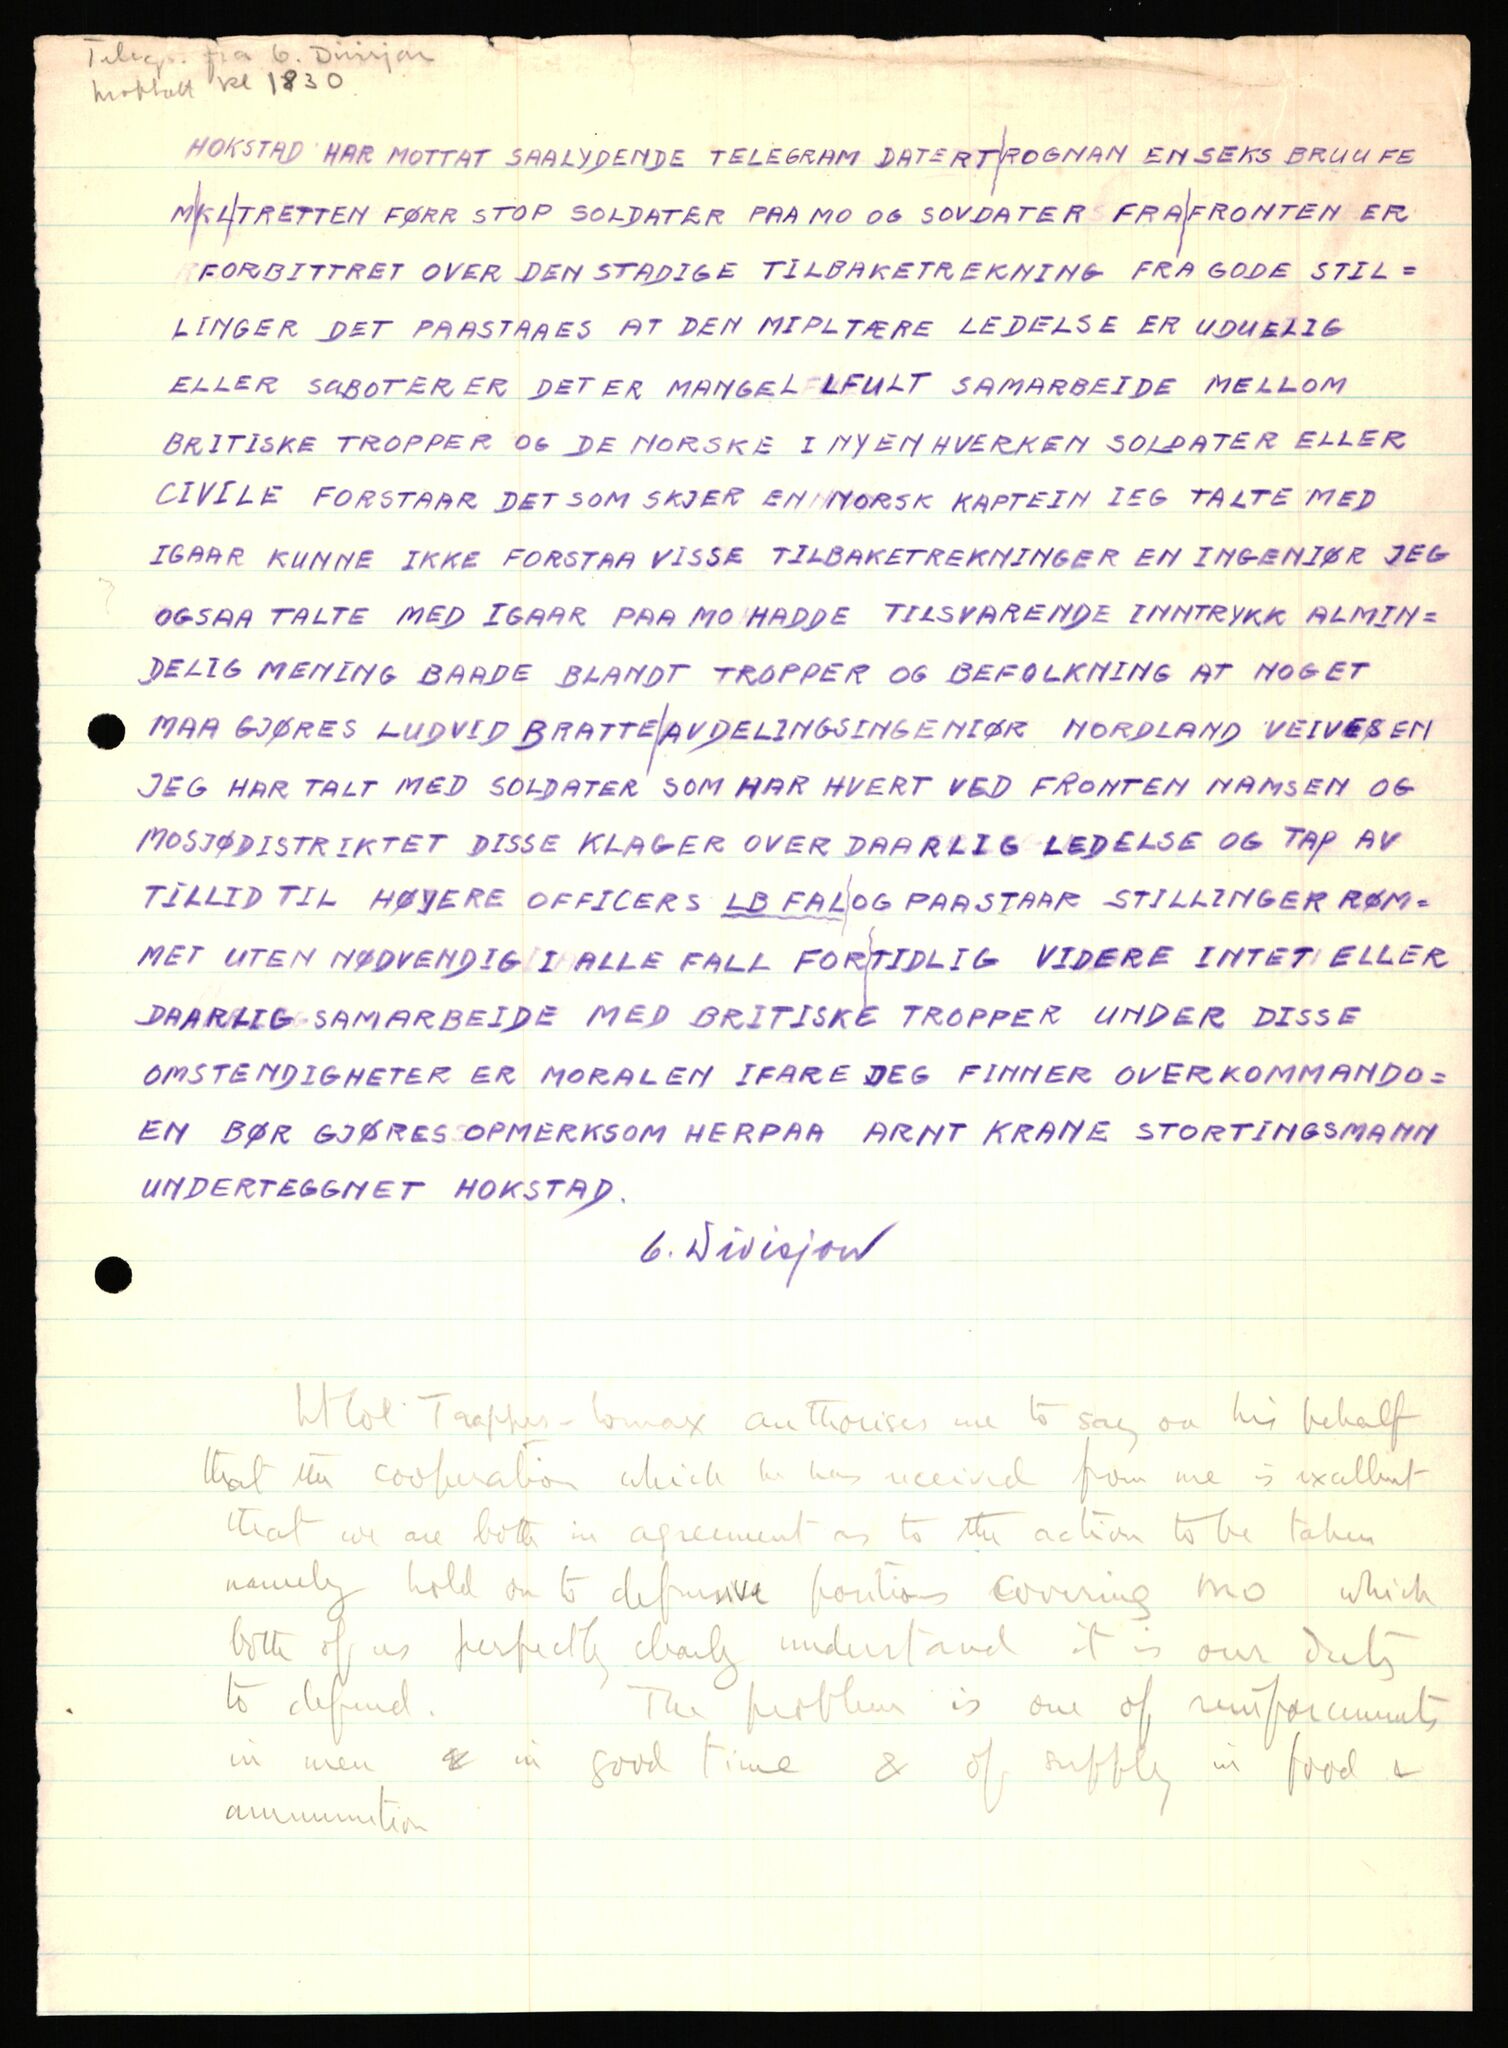 Telegr. fra 6. Divisjon
Mottatt kl 1830
HOKSTAD HAR MOTTAT SAALYDENDE TELEGRAM DATERT/ROGNAN EN SEKS BRUUFE
M/KL/TRETTEN FØRR STOP SOLDATER PAA MO OG SOVDATER FRA/FRONTEN ER
FORBITTRET OVER DEN STADIGE TILBAKETREKNING FRA GODE STIL=
LINGER DET PAASTAAES AT DEN MIPLTÆRE LEDELSE ER UDUELIG
ELLER SABOTERER DET ER MANGEL LFULT SAMARBEIDE MELLOM
BRITISKE TROPPER OG DE NORSKE I NYEN HVERKEN SOLDATER ELLER
CIVILE FORSTAAR DET SOM SKJER EN NORSK KAPTEIN IEG TALTE MED
IGAAR KUNNE IKKE FORSTAA VISSE TILBAKETREKNINGER EN INGENIØR JEG
? OGSAA TALTE MED IGAAR PAA MO HADDE TILSVARENDE INNTRYKK ALMIN=
DELIG MENING BAADE BLANDT TROPPER OG BEFOLKNING AT NOGET
MAA GJØRES LUDVID BRATTE/AVDELINGSINGENIØR NORDLAND VEIVESEN
JEG HAR TALT MED SOLDATER SOM HAR HVERT VED FRONTEN NAMSEN OG
MOSJØDISTRIKTET DISSE KLAGER OVER DAARLIG LEDELSE OG TAP AV
TILLID TIL HØYERE OFFICERS LB FAL/OG PAASTAAR STILLINGER RØM=
MET UTEN NØDVENDIG I ALLE FALL FOR/TIDLIG VIDERE INTET ELLER
DAARLIG SAMARBEIDE MED BRITISKE TROPPER UNDER DISSE
OMSTENDIGHETER ER MORALEN IFARE JEG FINNER OVERKOMMANDO=
EN BØR GJØRES OPMERKSOM HERPAA ARNT KRANE STORTINGSMANN
UNDERTEGGNET HOKSTAD.
6. Divisjon
Lt Col. Trappes-Lomax authorises me to say on his behalf
that the cooperation which he has received from me is excellent
that we are both in agreement as to the action to be taken
namely hold on to defensive positions covering MO which
both of us perfectly clearly understand it is our duty
to defend. The problem is one of reinforcements
in men & in good time & of supply in food &
ammunition